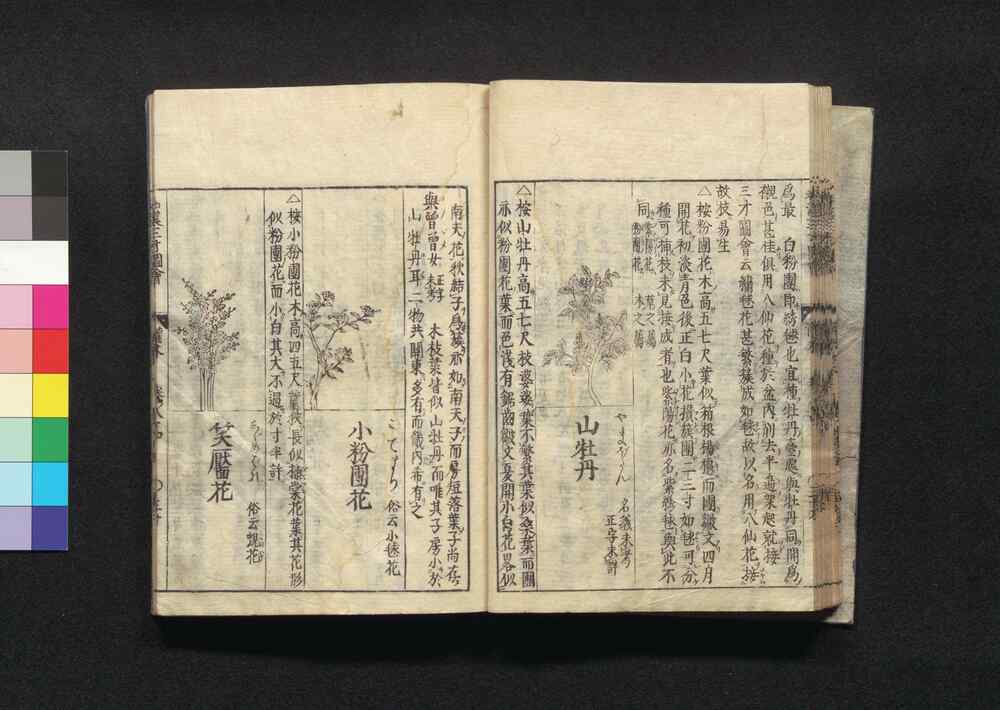 為最 白粉團即繡毬也宜種牡丹臺處與牡丹同開爲
襯色甚佳俱用八仙花種於盆內削去半邊架起就接
三才圖會云繡毬花甚繁簇成如毬故以名用八仙花接
故技易生
△按粉團花木高五七尺葉似箱根揚櫨而團皺文四月
開花初淡青色後正白小花攅簇團二三寸如毬可分
種可揷枝未見接成者也紫陽花亦名紫繡毬與此不
同 紫陽花 草之屬
粉團花 木之屬
山牡丹
やまぼたん 名義未考
正字未詳
△按山牡丹高五七尺枝婆娑葉不繁其葉似桑葉而團
亦似粉團花葉而色淺有鋸齒皺文夏開小白花畧似
南天花秋結子爲簇亦如南天子而房短落葉子尚在
與曽曽女 正字
未考 木枝葉皆似山牡丹而唯其子房小於
山牡丹耳二物共關東多有而畿内希有之
小粉團花
こてまり 俗云小毬花
△按小粉團花木高四五尺葉狹長似棣棠花葉其花形
似粉團花而小白其大不過於寸半計
笑靨花
俗云蜆花